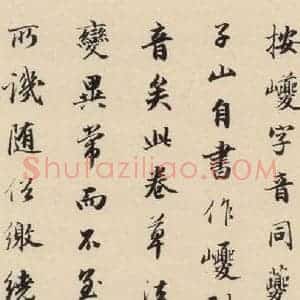 按巙字音同夔
子山自書作巙
音矣此卷草法
變異常而不至
所譏随俗繳繞
Shufaziliao.com